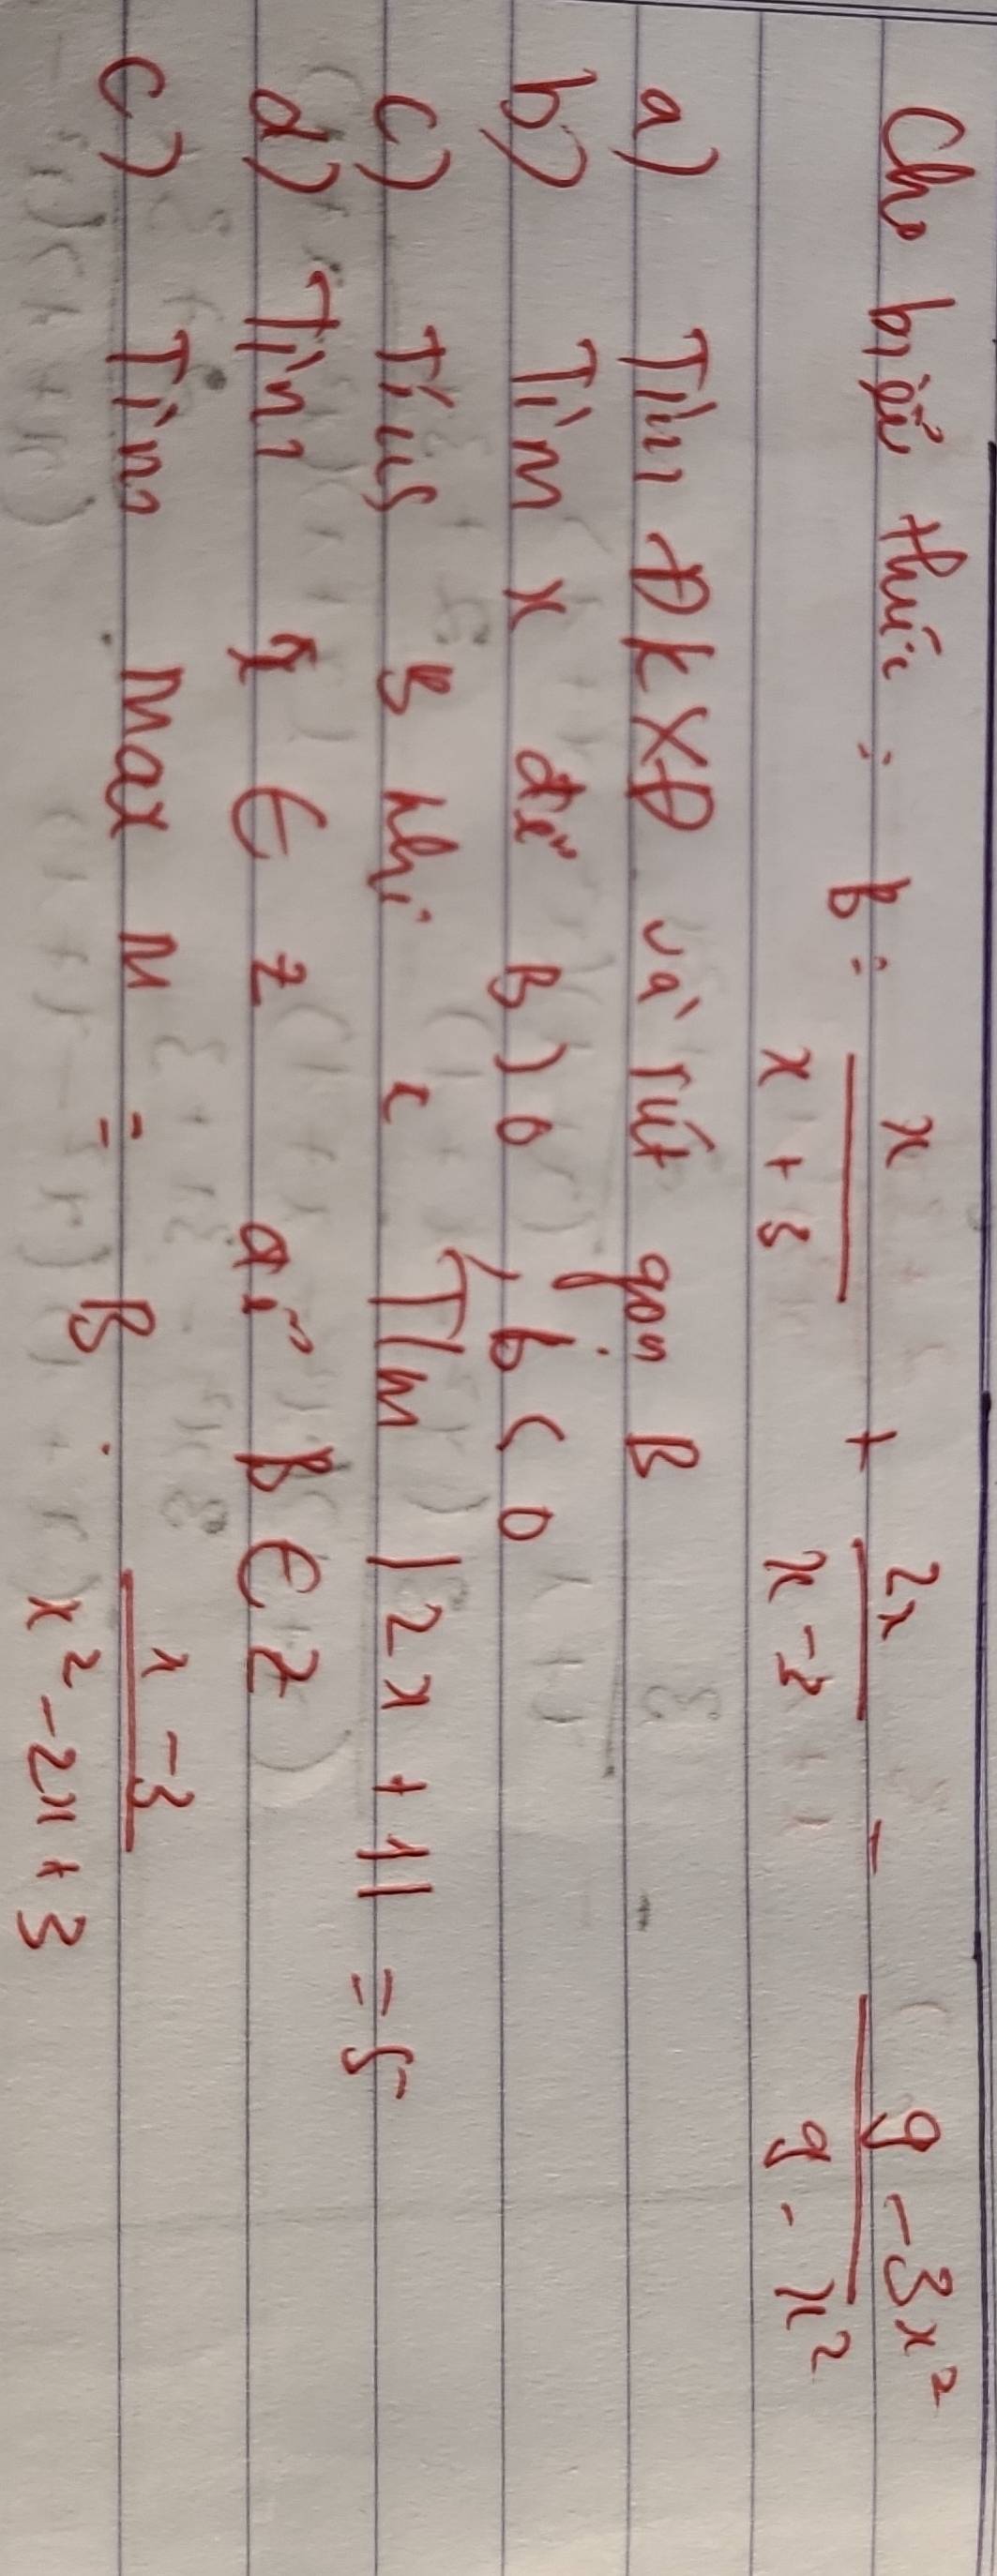 Cho biểu thức : B = x / x + 3 + 2x / x - 3 - 9 - 3x² / 9 - x²
a) Tìm ĐKXĐ và rút gọn B
b) Tìm x để B > 0 , B < 0
c) Tính B khi x Tm |2x + 1| = 5
d) Tìm x ∈ Z để B ∈ Z
c) Tìm max M = B . x - 3 / x² - 2x + 3